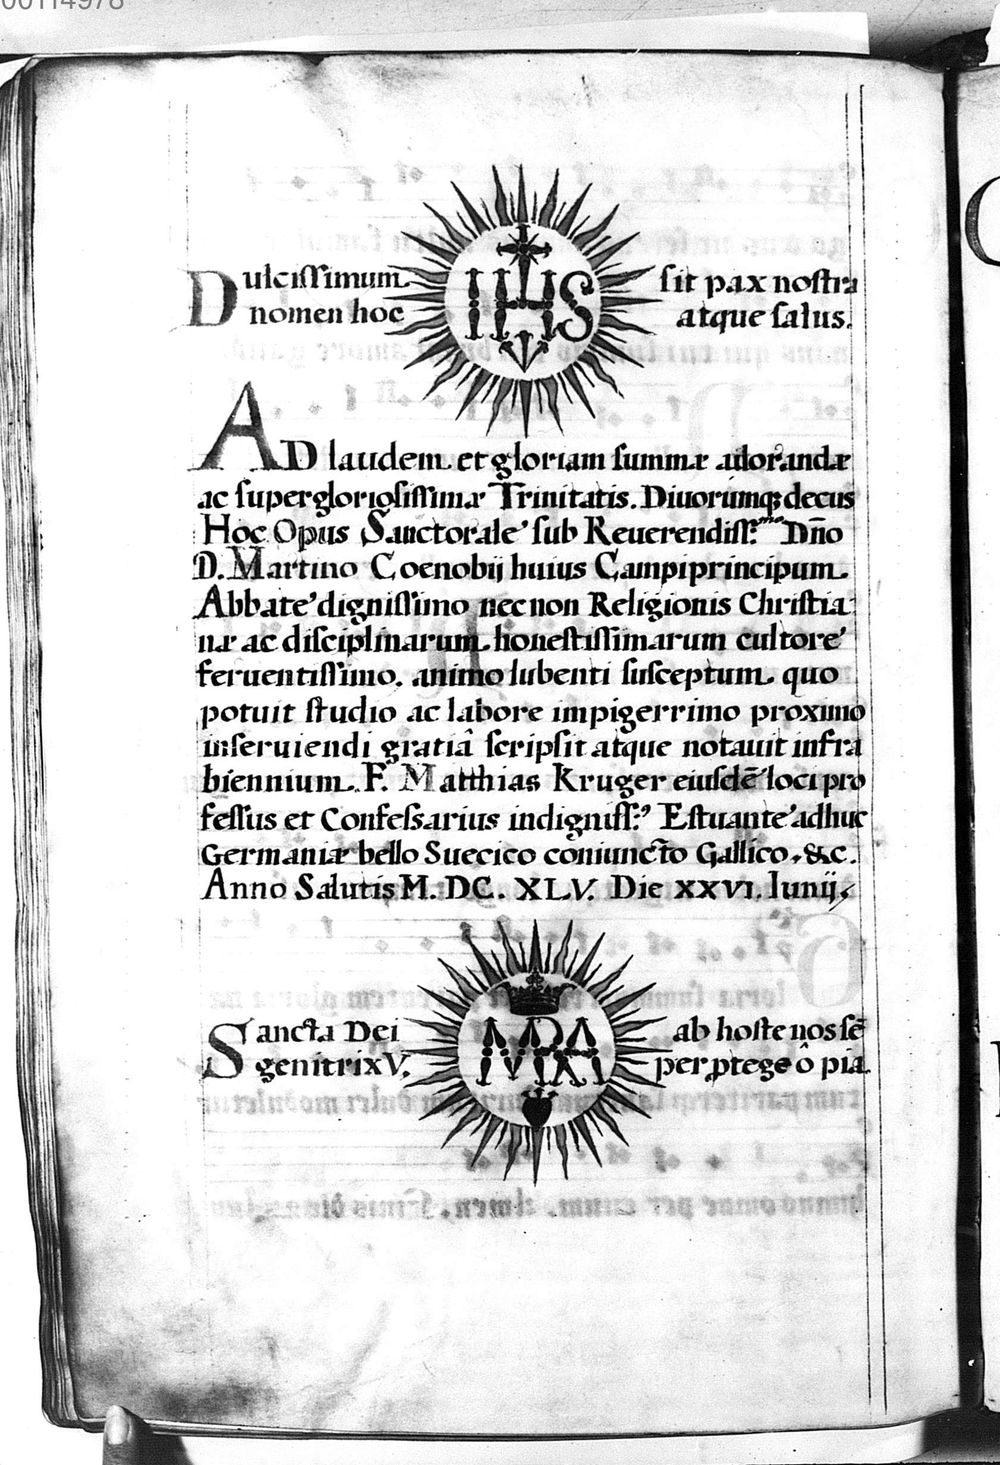 00114978
Dulcissimum IHS sit pax nostra
nomen hoc atque salus.
AD laudem et gloriam summæ adorandæ
ac supergloriosissimæ Trinitatis. Diuorumq; decus
Hoc Opus Sanctorale sub Reuerendiss:mo Dño
D. Martino Coenobij huius Campiprincipum
Abbate dignissimo necnon Religionis Christia-
næ ac disciplinarum honestissimarum cultore
feruentissimo. animo lubenti susceptum quo
potuit studio ac labore impigerrimo proximo
inseruiendi gratiâ scripsit atque notauit infra
biennium. F. Matthias Kruger eiusdē loci pro
fessus et Confessarius indigniss:9 Estuante adhuc
Germaniæ bello Suecico coniuncto Gallico. &c.
Anno Salutis M. DC. XLV. Die XXVI. Iunij
Sancta Dei MRA ab hoste nos sē
genitrix V. per ptege ô pia.